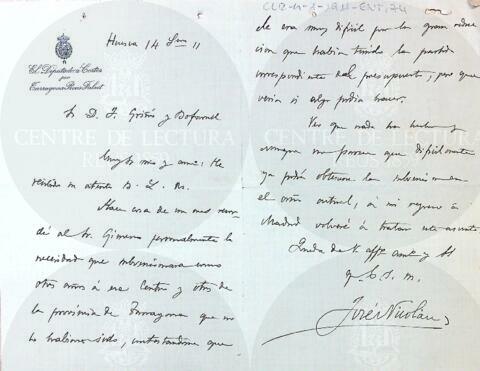 CLR-4-1-1911-ENT, 74
Huesca 14 Sbre 11
El Diputado a Cortes
por
Tarragona Reus Falset
Sr D. J. Grau y Bofarull
Muy Sr mio y amigo: He
recibido su atento B. L. M.
Hace cosa de un mes recor-
dé al Sr. Gimeno personalmente la
necesidad que subvencionara como
otros años á ese Centro y otros de
la provincia de Tarragona que no
lo habían sido, contestandome que
le era muy difícil por la gran reduc
cion que habia tenido la partida
correspondiente del presupuesto, pero que
veria si algo podia hacer.
Veo que nada ha hecho y
aunque me parece que dificilmente
ya podrá obtenerse la subvención en
el año actual, á mi regreso á
Madrid volveré á tratar este asunto
Queda de V. affmo amigo y SS
q b s m.
José Nicolau
CENTRE DE LECTURA
CENTRE DE LECTURA